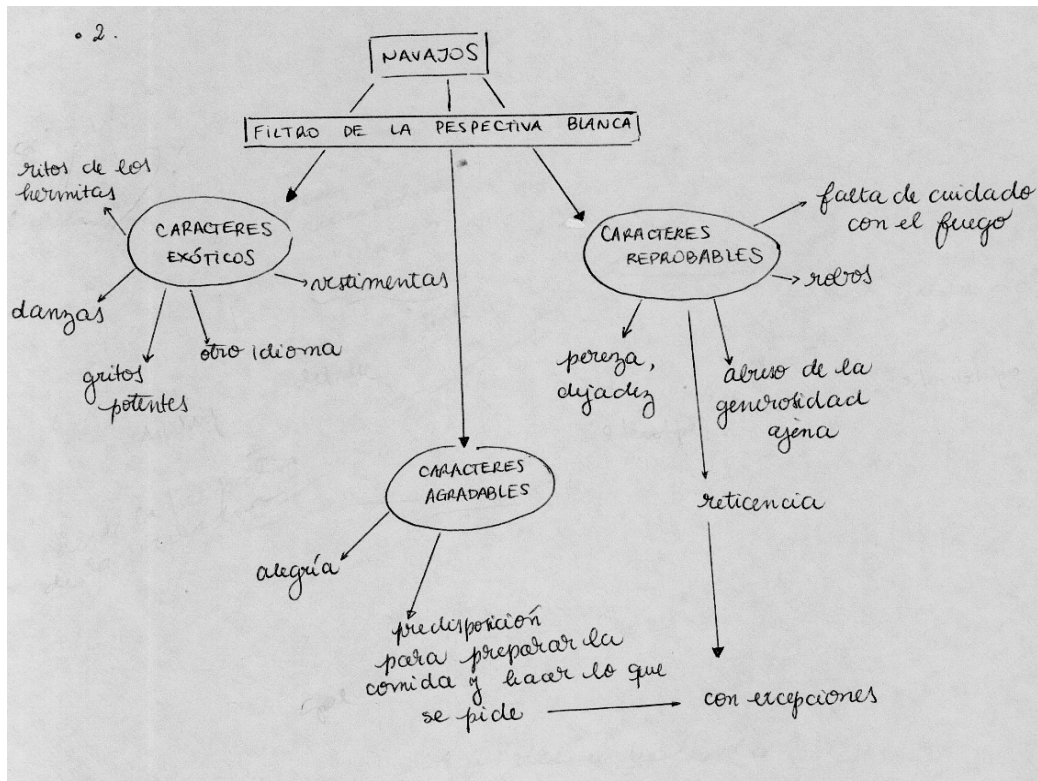 • 2.
NAVAJOS
FILTRO DE LA PESPECTIVA BLANCA
ritos de los
hermitas
CARACTERES
EXÓTICOS
vestimentas
danzas
gritos
potentes
otro idioma
CARACTERES
REPROBABLES
falta de cuidado
con el fuego
robos
pereza,
dejadez
abuso de la
generosidad
ajena
reticencia
CARACTERES
AGRADABLES
alegría
predisposición
para preparar la
comida y hacer lo que
se pide
con excepciones